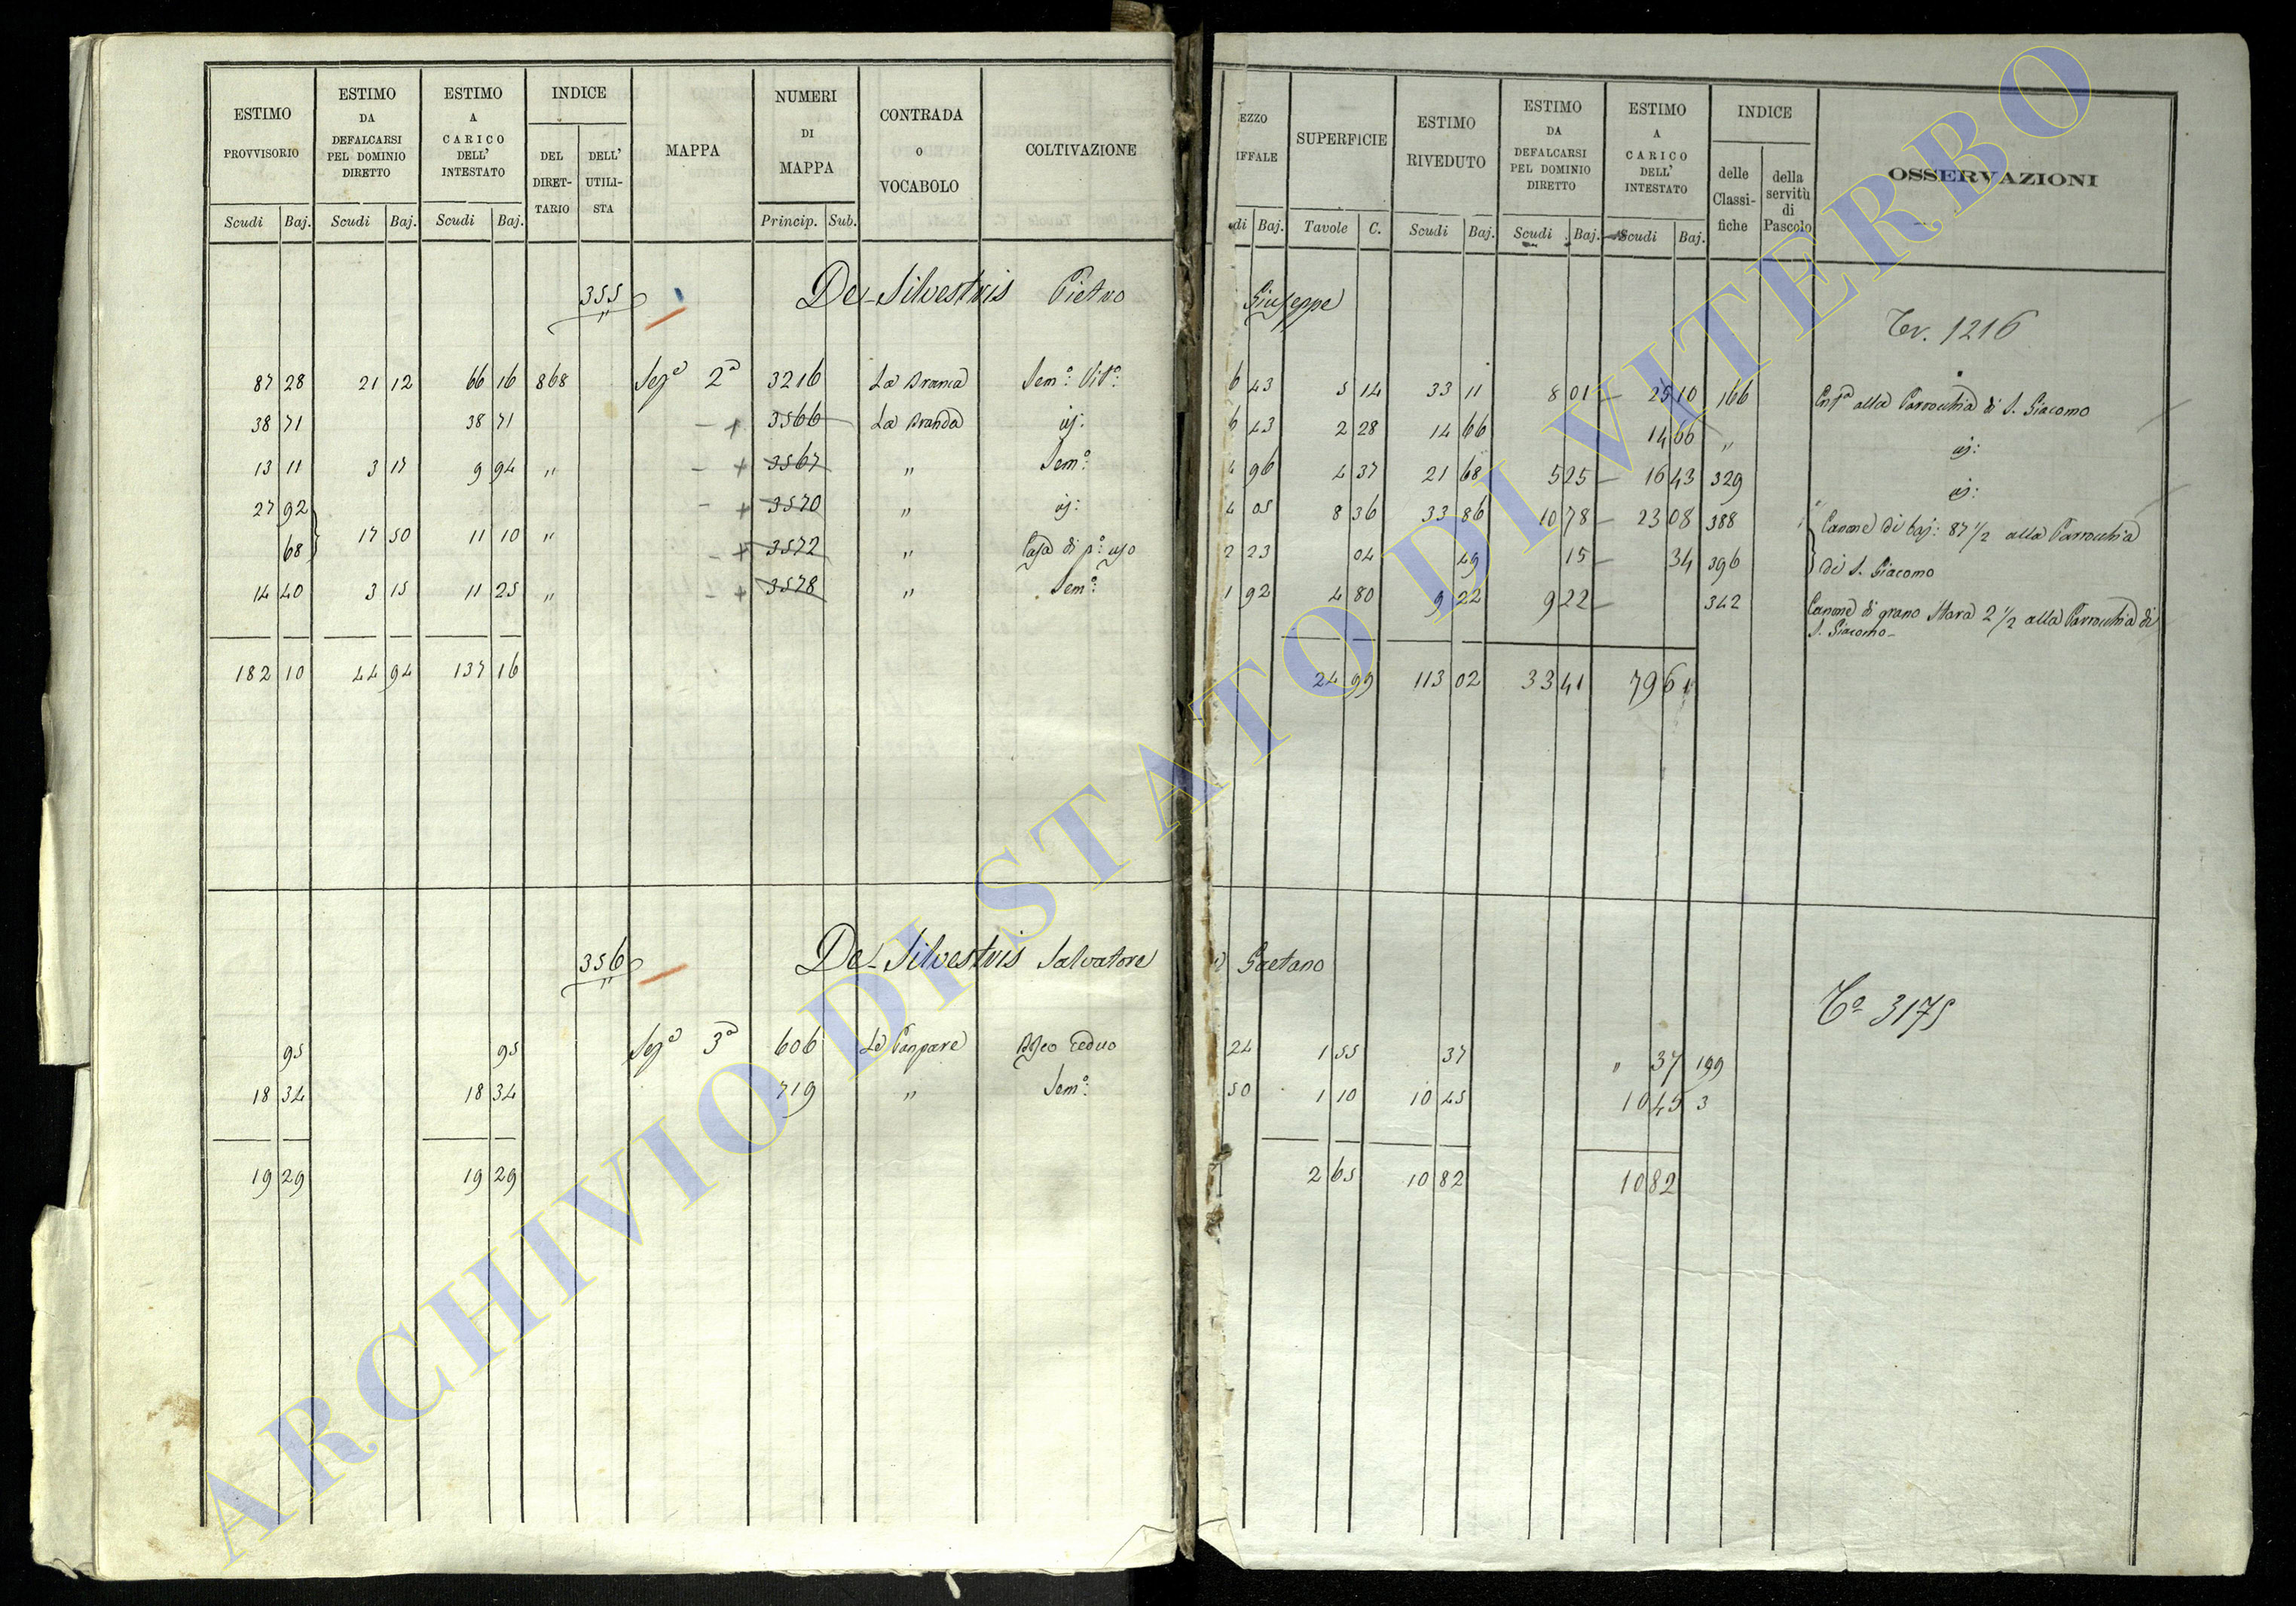 ESTIMO PROVVISORIO
ESTIMO DA DEFALCARSI PEL DOMINIO DIRETTO
ESTIMO A CARICO DELL' INTESTATO
INDICE
DEL DIRET-TARIO
DELL' UTILI-STA
MAPPA
NUMERI DI MAPPA
CONTRADA O VOCABOLO
COLTIVAZIONE
Scudi Baj. Scudi Baj. Scudi Baj. Princip. Sub.
355 De-Silvestris Pietro
87 28 21 12 66 16 868 Sezе 2a 3216 La Branca Semo: Vito:
38 71 38 71 - + 3566 La Branda id:
13 11 3 17 9 94 " - + 3567 " Semo:
27 92 - + 3570 " id:
68 17 50 11 10 " - + 3572 " Casa di po: uso
14 40 3 15 11 25 " - + 3578 " Semo:
182 10 44 94 137 16
356 De-Silvestris Salvatore
95 95 Sezе 3a 606 Le Panpare Bsco Ceduo
18 34 18 34 719 " Semo:
19 29 19 29
EZZO IFFALE
SUPERFICIE
ESTIMO RIVEDUTO
ESTIMO DA DEFALCARSI PEL DOMINIO DIRETTO
ESTIMO A CARICO DELL' INTESTATO
INDICE
delle Classi-fiche
della servitù di Pascolo
OSSERVAZIONI
di Baj. Tavole C. Scudi Baj. Scudi Baj. Scudi Baj.
Giuseppe
Tv. 1216
6 43 5 14 33 11 8 01 25 10 166 alla Parrochia di S. Giacomo
6 43 2 28 14 66 14 66 " id:
4 96 4 37 21 68 5 25 16 43 329 id:
4 05 8 36 33 86 10 78 23 08 388 Canone di baj: 87 1/2 alla Parrochia
2 23 04 49 15 34 396 di S. Giacomo
1 92 4 80 9 22 9 22 342 Canone di grano Stara 2 1/2 alla Parrochia di
S. Giacomo-
24 99 113 02 33 41 79 61
Gaetano
Co 3175
24 1 55 37 " 37 199
50 1 10 10 45 10 45 3
2 65 10 82 10 82
ARCHIVIO DI STATO DI VITERBO